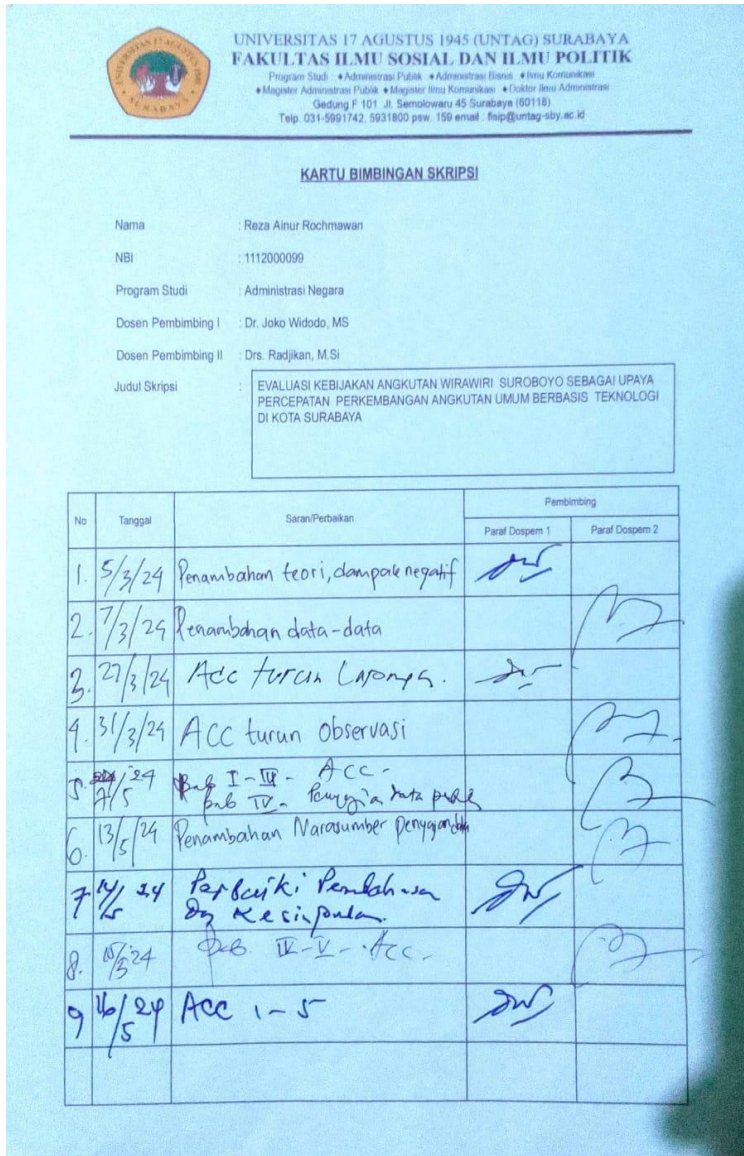 UNIVERSITAS 17 AGUSTUS 1945 (UNTAG) SURABAYA
FAKULTAS ILMU SOSIAL DAN ILMU POLITIK
Program Studi : ♦Administrasi Publik ♦Administrasi Bisnis ♦Ilmu Komunikasi
♦Magister Administrasi Publik ♦Magister Ilmu Komunikasi ♦Doktor Ilmu Administrasi
Gedung F 101 Jl. Semolowaru 45 Surabaya (60118)
Telp. 031-5991742, 5931800 psw. 159 email : fisip@untag-sby.ac.id
UNIVERSITAS 17 AGUSTUS 1945
SURABAYA
KARTU BIMBINGAN SKRIPSI
Nama : Reza Ainur Rochmawan
NBI : 1112000099
Program Studi : Administrasi Negara
Dosen Pembimbing I : Dr. Joko Widodo, MS
Dosen Pembimbing II : Drs. Radjikan, M.Si
Judul Skripsi : EVALUASI KEBIJAKAN ANGKUTAN WIRAWIRI SUROBOYO SEBAGAI UPAYA
PERCEPATAN PERKEMBANGAN ANGKUTAN UMUM BERBASIS TEKNOLOGI
DI KOTA SURABAYA
No Tanggal Saran/Perbaikan Pembimbing
Paraf Dospem 1 Paraf Dospem 2
1. 5/3/24 Penambahan teori, dampak negatif
2. 7/3/24 Penambahan data-data
3. 27/3/24 Acc turun
4. 31/3/24 ACC turun Observasi
5. 7/5 24 Bab I-III - ACC -
bab IV - data
6. 13/5/24 Penambahan Narasumber penyajian data
7 14/5 24 Perbaiki Pembahasan
Dg Kesimpulan
8. 15/5 24 Bab IV-V - Acc -
9 16/5 24 ACC 1-5